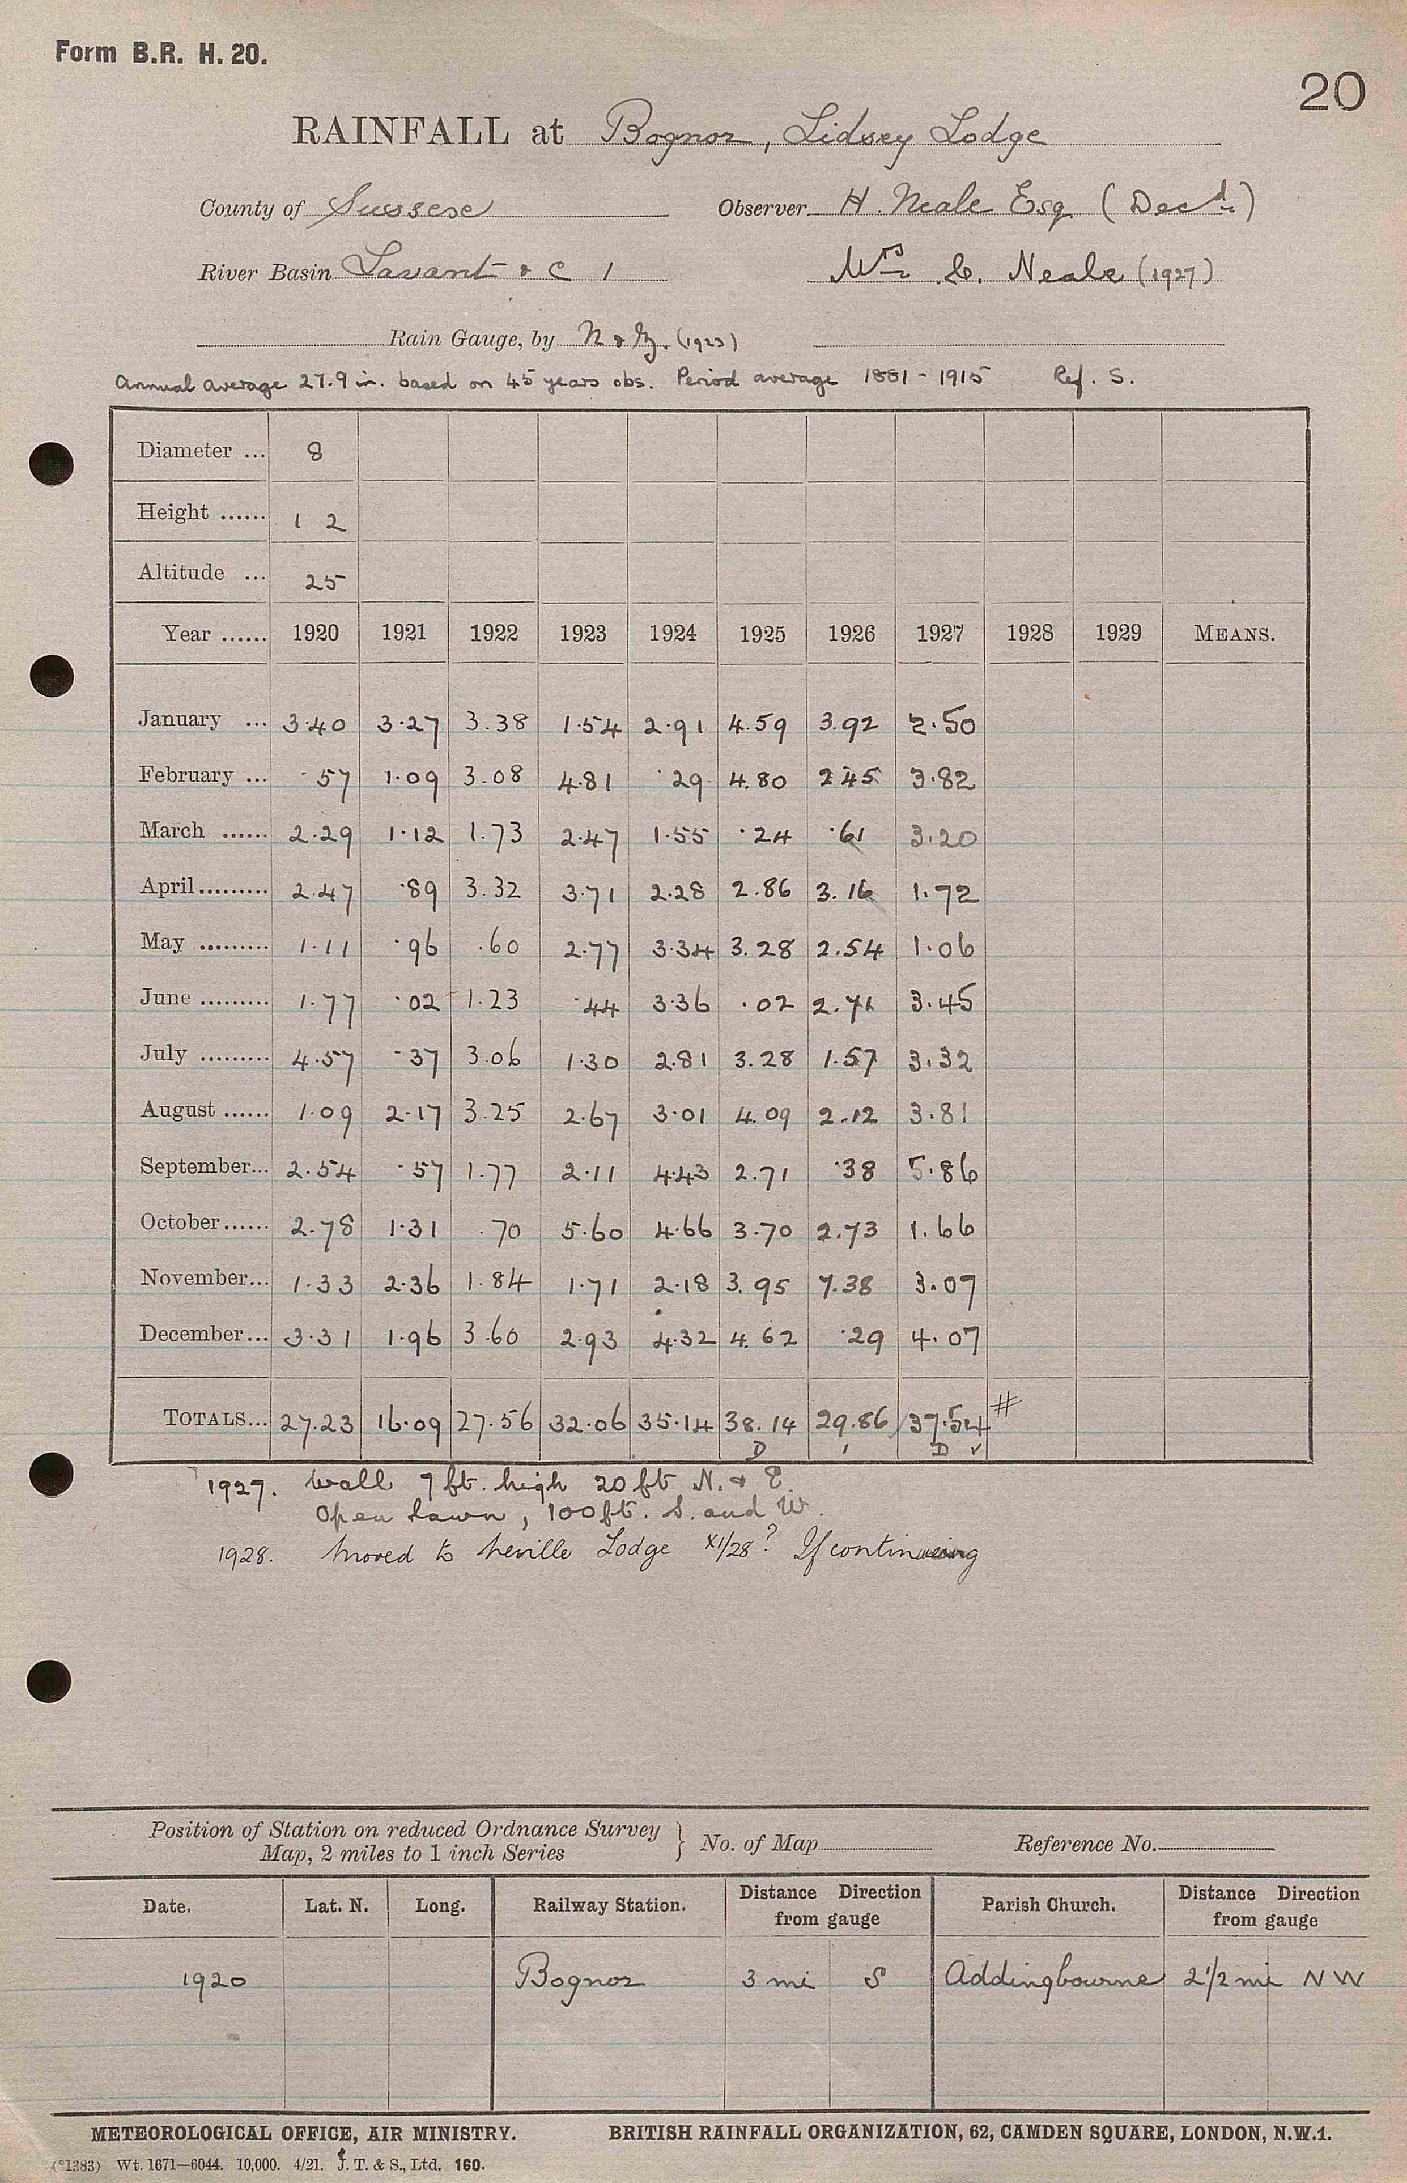 Form B.R. H. 20.
20
RAINFALL at Bognor, Lidsey Lodge
County of Sussex Observer H. Neale Esq (Decd.)
River Basin Lavant & C 1 Mrs C. Neale (1927)
Rain Gauge, by N & Z. (1923)
Annual average 27.9 in. based on 45 years obs. Period average 1881-1915 Ref. S.
Diameter ... 8
Height ...... 1 2
Altitude ... 25
Year ...... 1920 1921 1922 1923 1924 1925 1926 1927 1928 1929 MEANS.
January ... 3.40 3.27 3.38 1.54 2.91 4.59 3.92 2.50
February ... .57 1.09 3.08 4.81 .29 4.80 2.45 3.82
March ...... 2.29 1.12 1.73 2.47 1.55 .24 .61 3.20
April......... 2.47 .89 3.32 3.71 2.28 2.86 3.16 1.72
May ......... 1.11 .96 .60 2.77 3.34 3.28 2.54 1.06
June ......... 1.77 .02 1.23 .44 3.36 .02 2.71 3.45
July ......... 4.57 .37 3.06 1.30 2.81 3.28 1.57 3.32
August ...... 1.09 2.17 3.25 2.67 3.01 4.09 2.12 3.81
September... 2.54 .57 1.77 2.11 4.43 2.71 .38 5.86
October...... 2.78 1.31 .70 5.60 4.66 3.70 2.73 1.66
November... 1.33 2.36 1.84 1.71 2.18 3.95 7.38 3.07
December... 3.31 1.96 3.60 2.93 4.32 4.62 .29 4.07
TOTALS... 27.23 16.09 27.56 32.06 35.14 38.14 29.86 37.54 #
D D ✓
1927. Wall 7 ft. high 20 ft N. & E.
Open lawn, 100 ft. S. and W.
1928. Moved to Neville Lodge XI/28? If continuing
Position of Station on reduced Ordnance Survey
Map, 2 miles to 1 inch Series } No. of Map Reference No.
Date. Lat. N. Long. Railway Station. Distance Direction from gauge Parish Church. Distance Direction from gauge
1920 Bognor 3 mi S Addingbourne 2 1/2 mi NW
METEOROLOGICAL OFFICE, AIR MINISTRY. BRITISH RAINFALL ORGANIZATION, 62, CAMDEN SQUARE, LONDON, N.W.1.
(*1383) Wt. 1671—6044. 10,000. 4/21. J. T. & S., Ltd. 160.